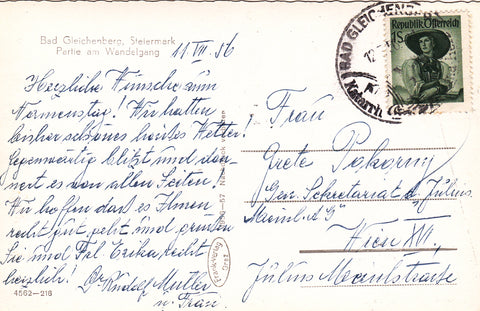 Bad Gleichenberg, Steiermark
Partie am Wandelgang
11 VII. 56
Herzliche Wünsche zum
Namenstag! Wir hatten
bisher schönes heißes Wetter!
Gegenwärtig blitzt und don-
nert es von allen Seiten.
Wir hoffen dass es Ihnen
recht gut geht und grüßen
Sie und Frl. Erika recht
herzlich! Dr. Rudolf Muller
u. Frau
4562-218
Republik Österreich
1S
BAD GLEICHENBERG
Frau
Grete Pokorny
Gen. Sekretariat d. "Julius
Meinl A G"
Wien XVI.
Julius Meinlstraße